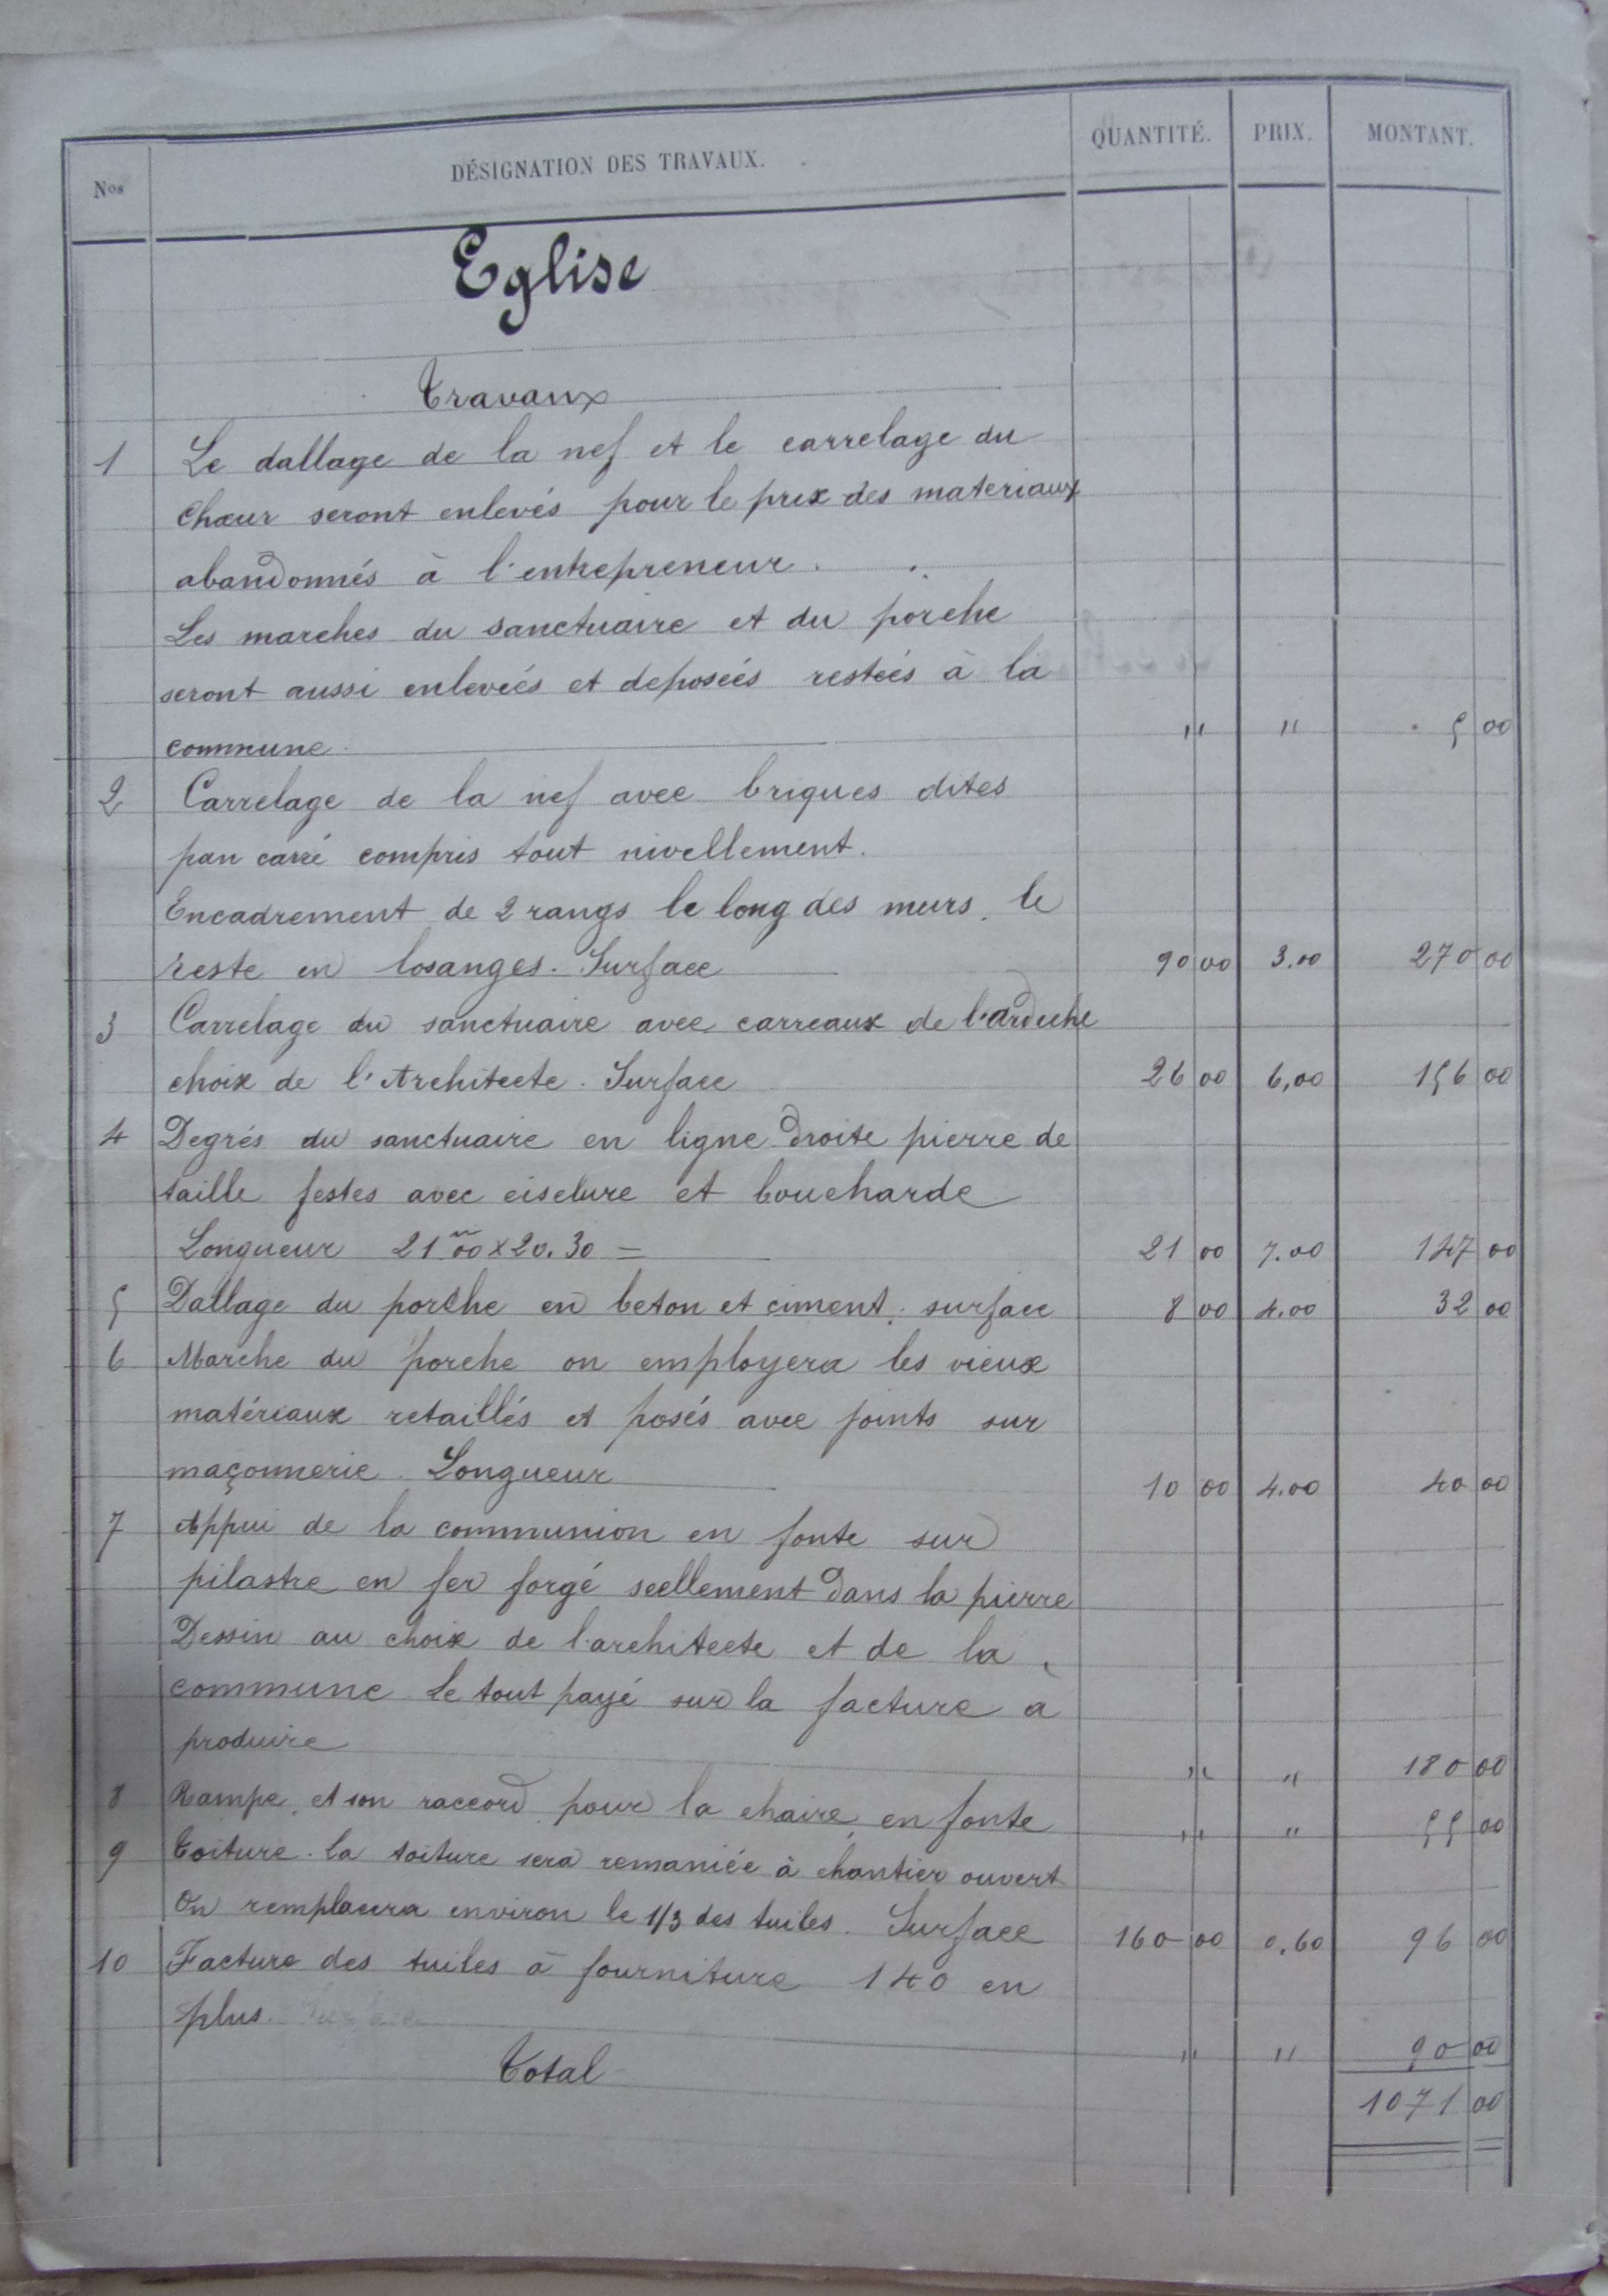 Nos DÉSIGNATION DES TRAVAUX. QUANTITÉ. PRIX. MONTANT.
Eglise
Travaux
1 Le dallage de la nef et le carrelage du
chœur seront enlevés pour le prix des materiaux
abandonnés à l'entrepreneur.
Les marches du sanctuaire et du porche
seront aussi enleveés et deposeés resteés à la
commune. " " 5 00
2 Carrelage de la nef avec briques dites
pan carré compris tout nivellement.
Encadrement de 2 rangs le long des murs. le
reste en losanges. Surface 90 00 3.00 270 00
3 Carrelage du sanctuaire avec carreaux de l'ardeche
choix de l'Architecte. Surface 26 00 6,00 156 00
4 Degrés du sanctuaire en ligne droite pierre de
taille festes avec ciselure et boucharde
Longueur 21m00 x 20.30 = 21 00 7.00 147 00
5 Dallage du porche en beton et ciment. surface 8 00 4.00 32 00
6 Marche du porche on employera les vieux
matériaux retaillés et posés avec joints sur
maçonnerie. Longueur 10 00 4.00 40 00
7 Appui de la communion en fonte sur
pilastre en fer forgé scellement dans la pierre
Dessin au choix de l'architecte et de la
commune Le tout payé sur la facture a
produire " " 180 00
8 Rampe, et son raccord pour la chaire, en fonte " " 55 00
9 Toiture. la toiture sera remaniée à chantier ouvert
On remplacera environ le 1/3 des tuiles. Surface 160 00 0,60 96 00
10 Facture des tuiles à fourniture 140 en
plus. " " 90 00
Total 1071 00